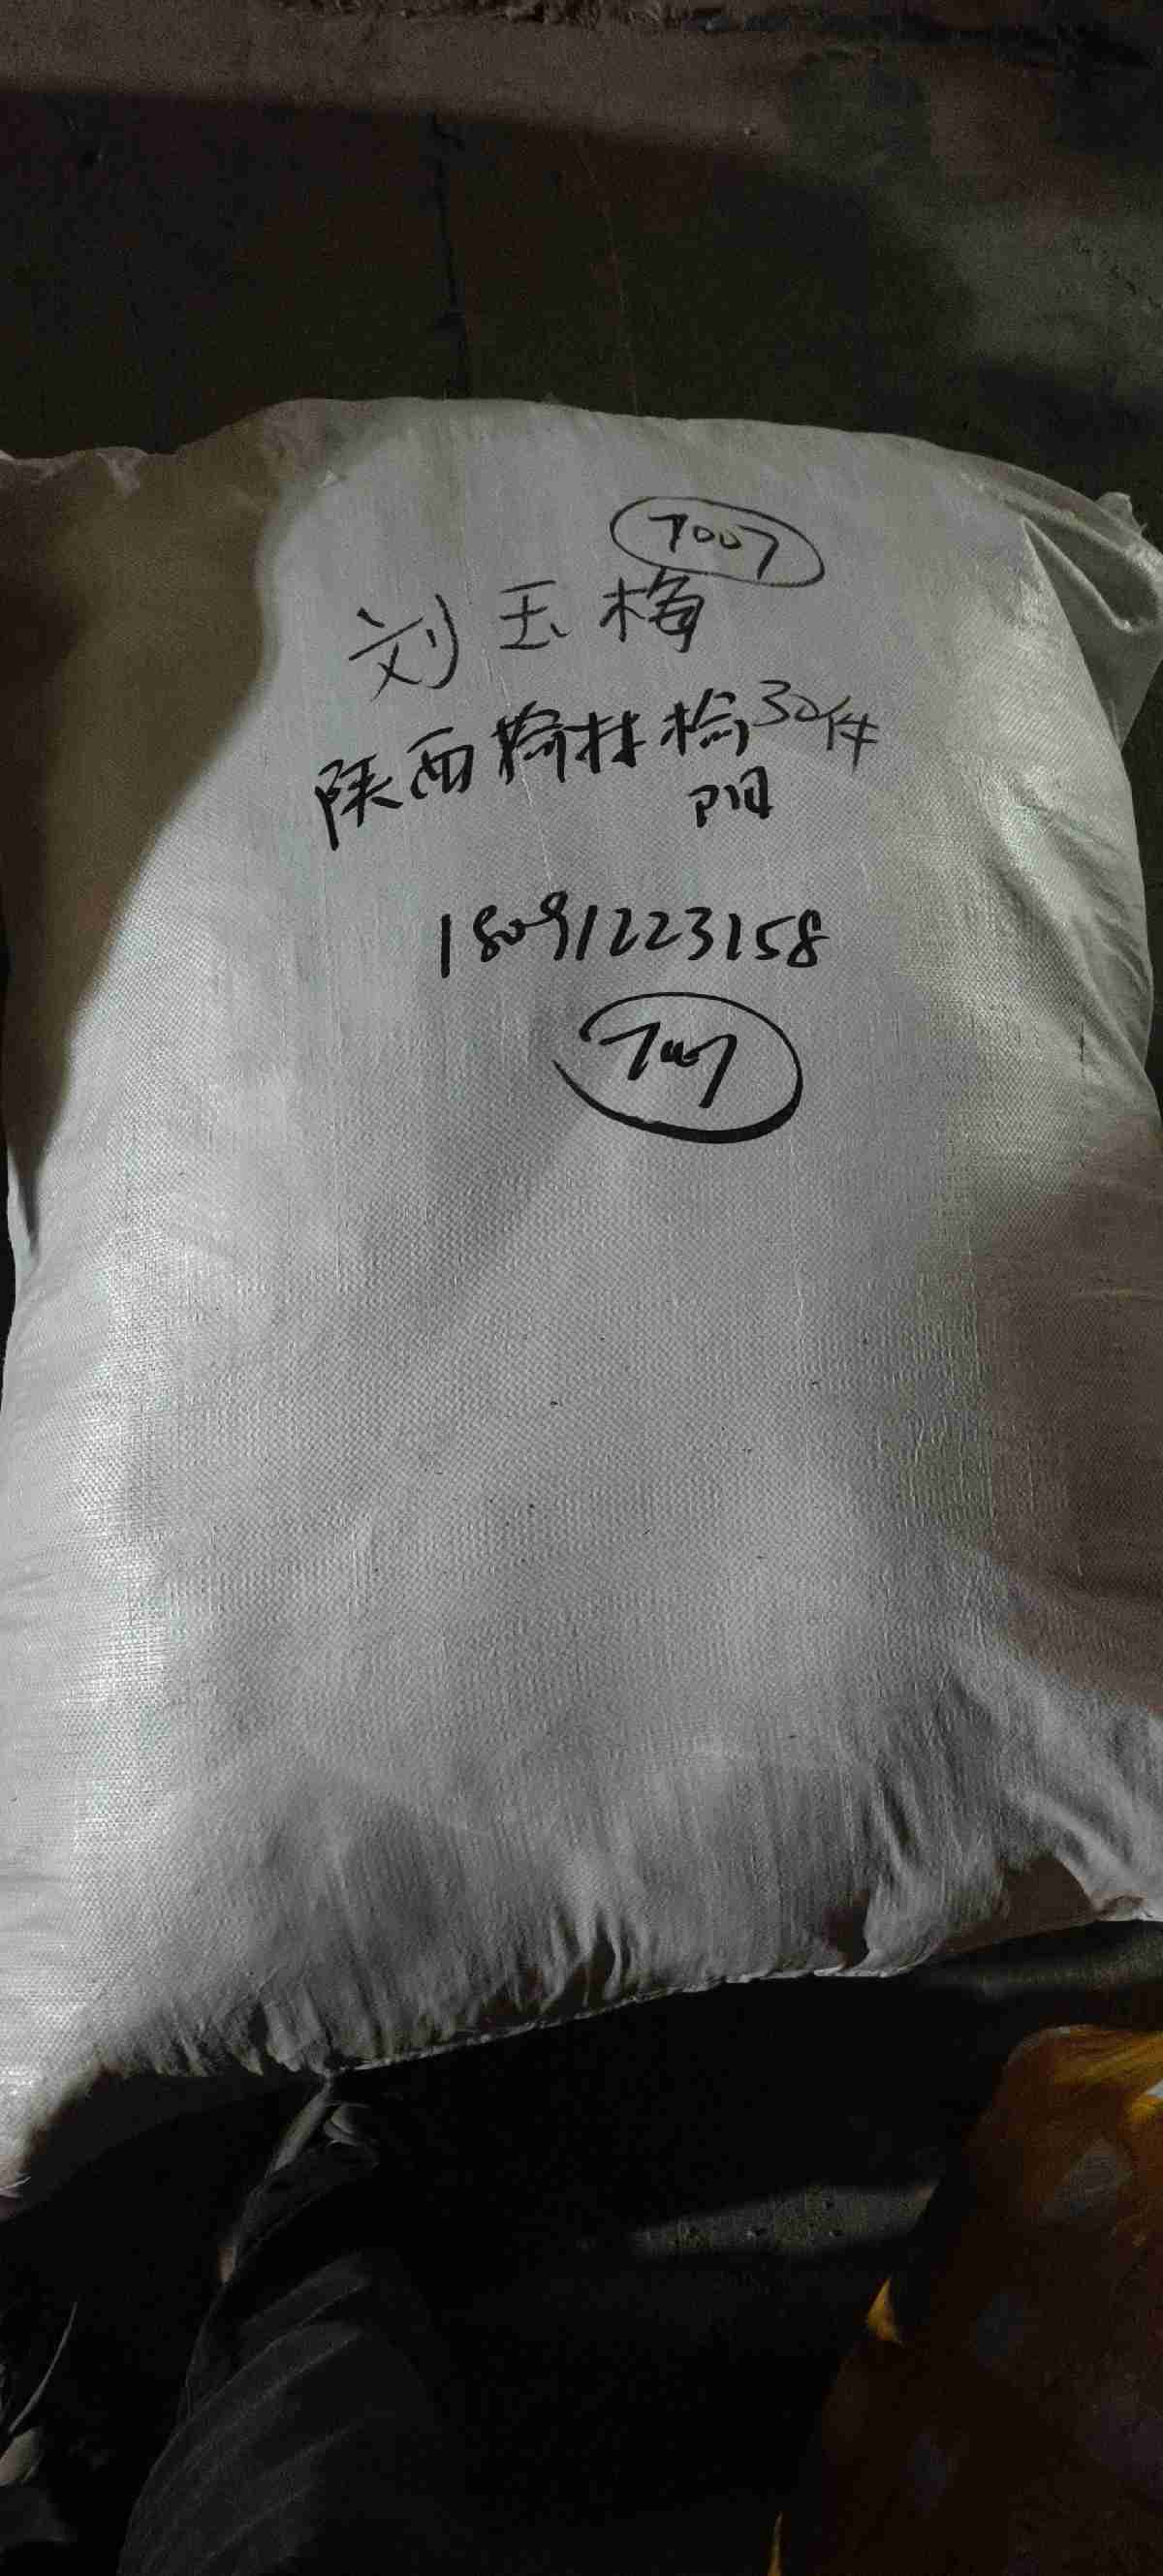 7007
刘玉梅
陕西榆林榆30件
阳
18091223158
7007